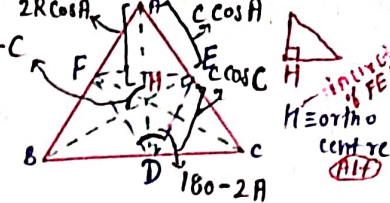 2RcosA
A
c cosA
-C
F
H
E
c cosC
B
D
C
180-2A
H
incircle
of FE
H≡ortho
centre
Alt